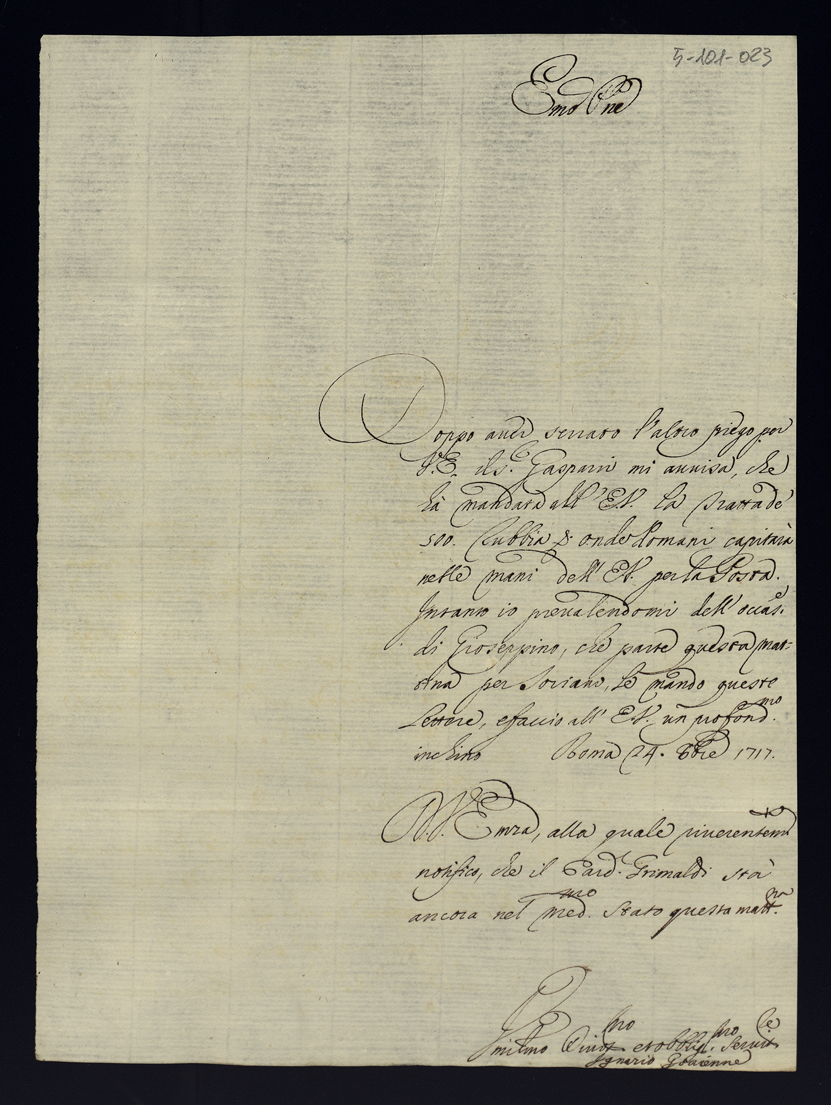 5-101-023
Emo Pne
Doppo aver serrato l'altro piego per
V.E. il S.r Gasparri mi avvisa, che
hà mandata all'E.V. la tratta de
500. Rubbia &. onde domani capitarà
nelle mani dell'E.V. per la Posta.
Intanto io prevalendomi dell'occas.e
di Gioseppino, che parte questa mat-
tina per Soriano, le mando queste
Lettere, e faccio all'E.V. un profond.mo
inchino Roma 24. 8bre 1717.
D. V. Emza, alla quale riverentem.te
notifico, che il Card.l Grimaldi stà
ancora nel med.mo stato questa matt.na
Umilmo Divot.mo et obblig.mo Servit.e
Ignazio